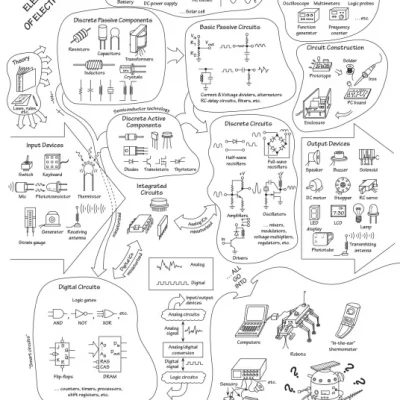 ELE
OF ELECTR
Battery
DC power supply
... Solar cell
Oscilloscope
Multimeters
Logic probes
Function generator
Frequency counter
... etc.
Discrete Passive Components
Resistors
Capacitors
Transformers
Inductors
Crystals
Basic Passive Circuits
Current & Voltage dividers, attenuators
RC delay circuits, filters, etc.
Circuit Construction
Prototype
Solder
Iron
PC board
Enclosure
Theory
Laws, rules,
etc.
Semiconductor technology
Discrete Active
Components
Diodes
Transistors
Thyristors
Discrete Circuits
Half-wave
rectifiers
Full-wave
rectifiers
Amplifiers
Oscillators
Drivers
... mixers,
modulators,
voltage multipliers,
regulators, etc.
Input Devices
Switch
Keyboard
Mic
Photoresistor
Thermistor
Strain gauge
Generator
Receiving
antenna
Output Devices
Speaker
Buzzer
Solenoid
DC motor
Stepper
RC servo
LED
LCD
Lamp
LED
display
Phototube
Transmitting
antenna
Integrated
Circuits
Analog ICs
Digital ICs
Analog
Digital
Digital Circuits
Logic gates
AND
NOT
XOR
etc.
Flip-flops
DRAM
RAS
CAS
... counters, timers, processors,
shift registers, etc.
Input/output
devices
Analog circuits
Analog
signal
Analog/digital
conversion
Digital
signal
Logic circuits
ALL
GO
INTO
Computers
Robots
"In-the-ear"
thermometer
Sensors
etc.
? ? ?